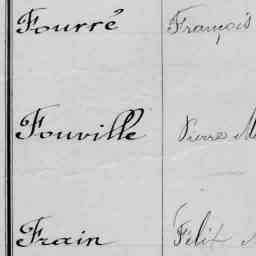 Fourré François
Fouville Pierre M
Frain Félix